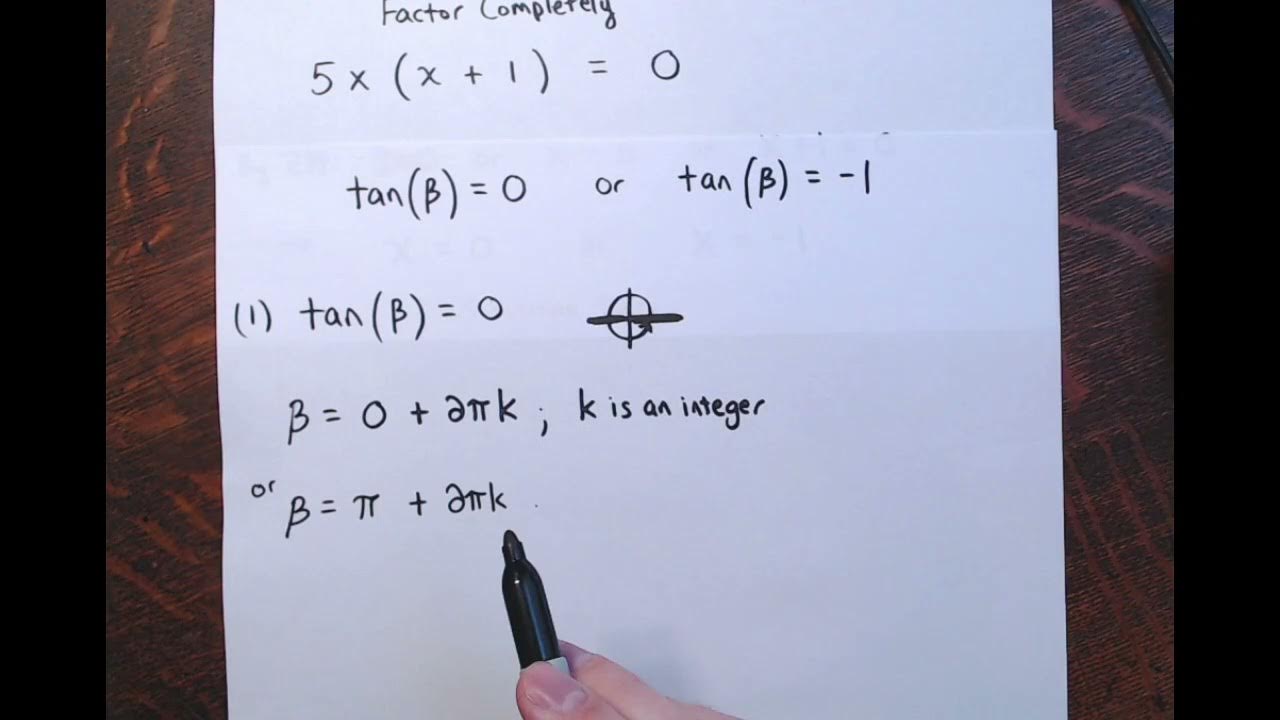 Factor Completely
5x (x + 1) = 0
tan(β) = 0 or tan(β) = -1
(1) tan(β) = 0
β = 0 + 2πk ; k is an integer
or β = π + 2πk